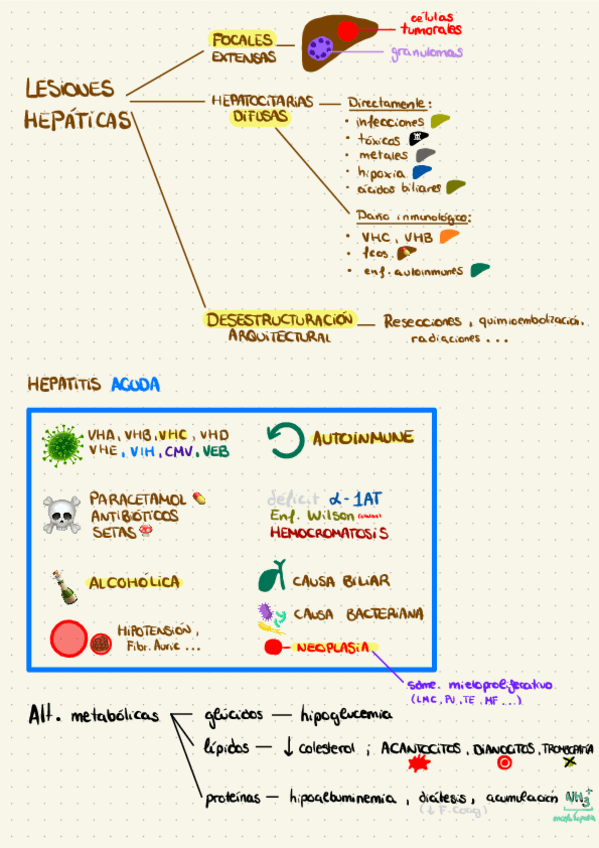 FOCALES
EXTENSAS
células
tumorales
granulomas
LESIONES
HEPÁTICAS
HEPATOCITARIAS
DIFUSAS
Directamente:
• infecciones
• tóxicos
• metales
• hipoxia
• ácidos biliares
Daño inmunológico:
• VHC, VHB
• fcos.
• enf. autoinmunes
DESESTRUCTURACIÓN
ARQUITECTURAL
Resecciones, quimioembolización,
radiaciones...
HEPATITIS AGUDA
VHA, VHB, VHC, VHD
VHE, VIH, CMV, VEB
AUTOINMUNE
PARACETAMOL
ANTIBIÓTICOS
SETAS
déficit α-1AT
Enf. Wilson
HEMOCROMATOSIS
ALCOHÓLICA
CAUSA BILIAR
CAUSA BACTERIANA
HIPOTENSIÓN,
Fibr. Auric...
NEOPLASIA
sdme. mieloproliferativo
(LMC, PV, TE, MF...)
Alt. metabólicas
glúcidos — hipoglucemia
lípidos — ↓ colesterol; ACANTOCITOS, DIANOCITOS, TROMBOPATÍA
proteínas — hipoalbuminemia, diátesis, acumulación NH₃⁺
(↓ F. Coag)